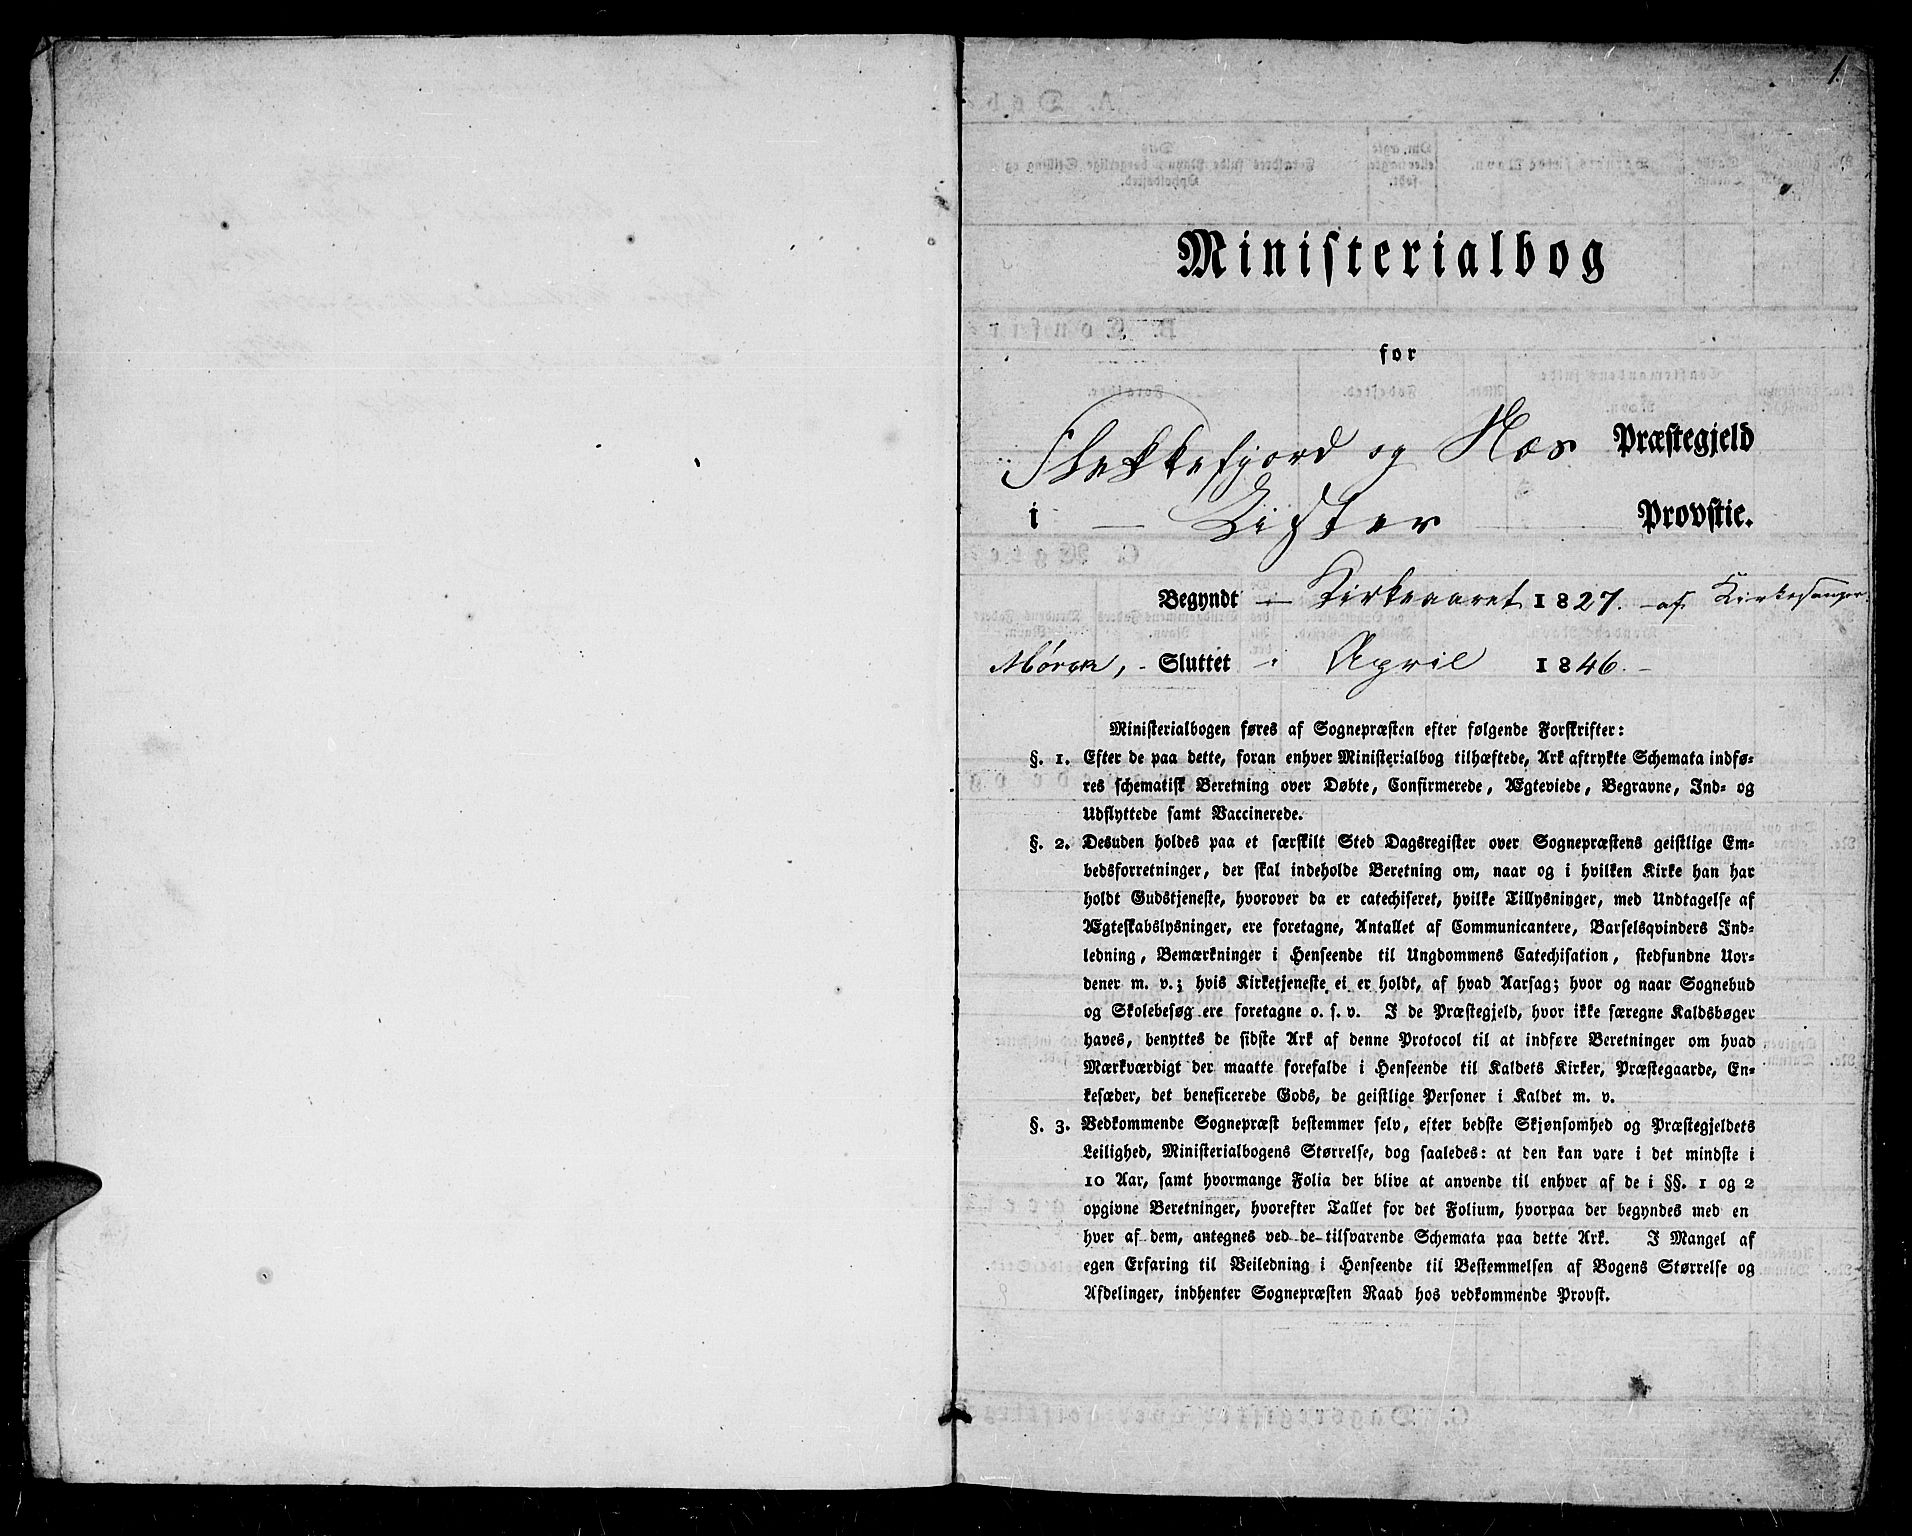 1
Ministerialbog
for
Flekkefjord og Næs Præstegjeld
i Lister Provstie.
Begyndt i Kirkeaaret 1827. af Kirkesanger
Sluttet i April 1846.
Ministerialbogen føres af Sognepræsten efter følgende Forskrifter:
§. 1. Efter de paa dette, foran enhver Ministerialbog tilhæftede, Ark aftrykte Schemata indfø-
res schematisk Beretning over Døbte, Confirmerede, Ægteviede, Begravne, Ind- og
Udflyttede samt Vaccinerede.
§. 2. Desuden holdes paa et særskilt Sted Dagsregister over Sognepræstens geistlige Em-
bedsforretninger, der skal indeholde Beretning om, naar og i hvilken Kirke han har
holdt Gudstjeneste, hvorover da er catechiseret, hvilke Tillysninger, med Undtagelse af
Ægteskabslysninger, ere foretagne, Antallet af Communicantere, Barselqvinders Ind-
ledning, Bemærkninger i Henseende til Ungdommens Catechisation, stedfundne Uor-
dener m. v.; hvis Kirketjeneste ei er holdt, af hvad Aarsag; hvor og naar Sognebud
og Skolebesøg ere foretagne o. s. v. I de Præstegjeld, hvor ikke særegne Kaldsbøger
haves, benyttes de sidste Ark af denne Protocol til at indføre Beretninger om hvad
Mærkværdigt der maatte forefalde i Henseende til Kaldets Kirker, Præstegaarde, En-
kesæder, det beneficerede Gods, de geistlige Personer i Kaldet m. v.
§. 3. Vedkommende Sognepræst bestemmer selv, efter bedste Skjønsomhed og Præstegjeldets
Leilighed, Ministerialbogens Størrelse, dog saaledes: at den kan vare i det mindste i
10 Aar, samt hvormange Folia der blive at anvende til enhver af de i §§. 1 og 2
opgivne Beretninger, hvorefter Tallet for det Folium, hvorpaa der begyndes med en
hver af dem, antegnes ved de tilsvarende Schemata paa dette Ark. I Mangel af
egen Erfaring til Veiledning i Henseende til Bestemmelsen af Bogens Størrelse og
Afdelinger, indhenter Sognepræsten Raad hos vedkommende Provst.